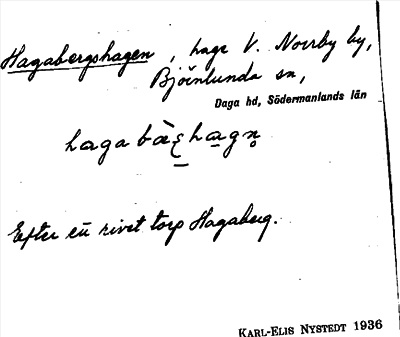 Hagabergshagen, hage V. Norrby by,
Björnlunda sn,
Daga hd, Södermanlands län
Efter ett rivet torp Hagaberg.
KARL-ELIS NYSTEDT 1936